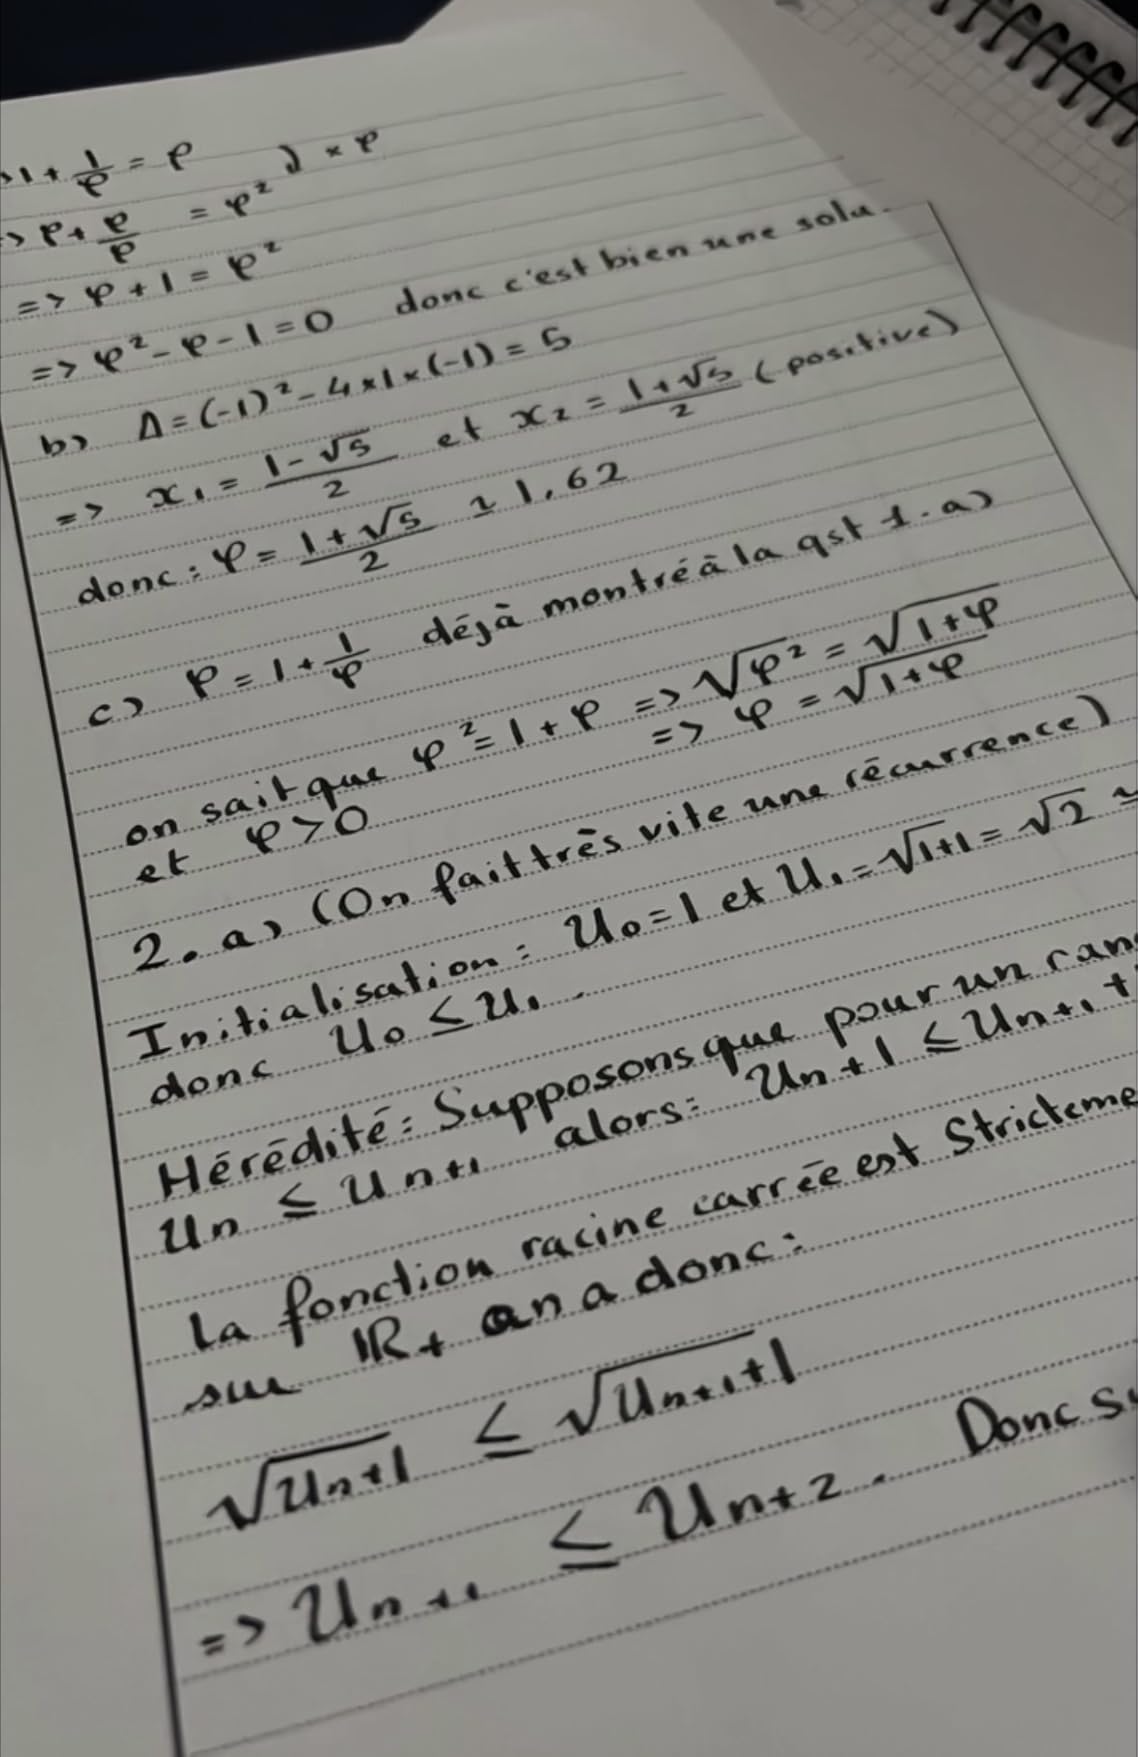 1 + 1/φ = φ ) × φ
=> φ + φ/φ = φ²
=> φ + 1 = φ²
=> φ² - φ - 1 = 0 donc c'est bien une solu.
b) Δ = (-1)² - 4×1×(-1) = 5
=> x₁ = (1-√5)/2 et x₂ = (1+√5)/2 (positive)
donc : φ = (1+√5)/2 ≃ 1,62
c) φ = 1 + 1/φ déjà montré à la qst 1.a)
on sait que φ² = 1 + φ => √φ² = √(1+φ)
et φ > 0 => φ = √(1+φ)
2. a) (On fait très vite une récurrence)
Initialisation : U₀ = 1 et U₁ = √(1+1) = √2 ≃
donc U₀ ≤ U₁.
Hérédité : Supposons que pour un ran
Uₙ ≤ Uₙ₊₁ alors : Uₙ + 1 ≤ Uₙ₊₁ +
la fonction racine carrée est Stricteme
sur ℝ+ on a donc :
√(Uₙ+1) ≤ √(Uₙ₊₁+1)
=> Uₙ₊₁ ≤ Uₙ₊₂. Donc s